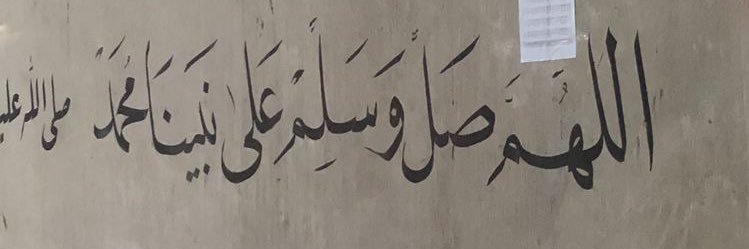 اللهم صل وسلم على نبينا محمد صلى الله عليه